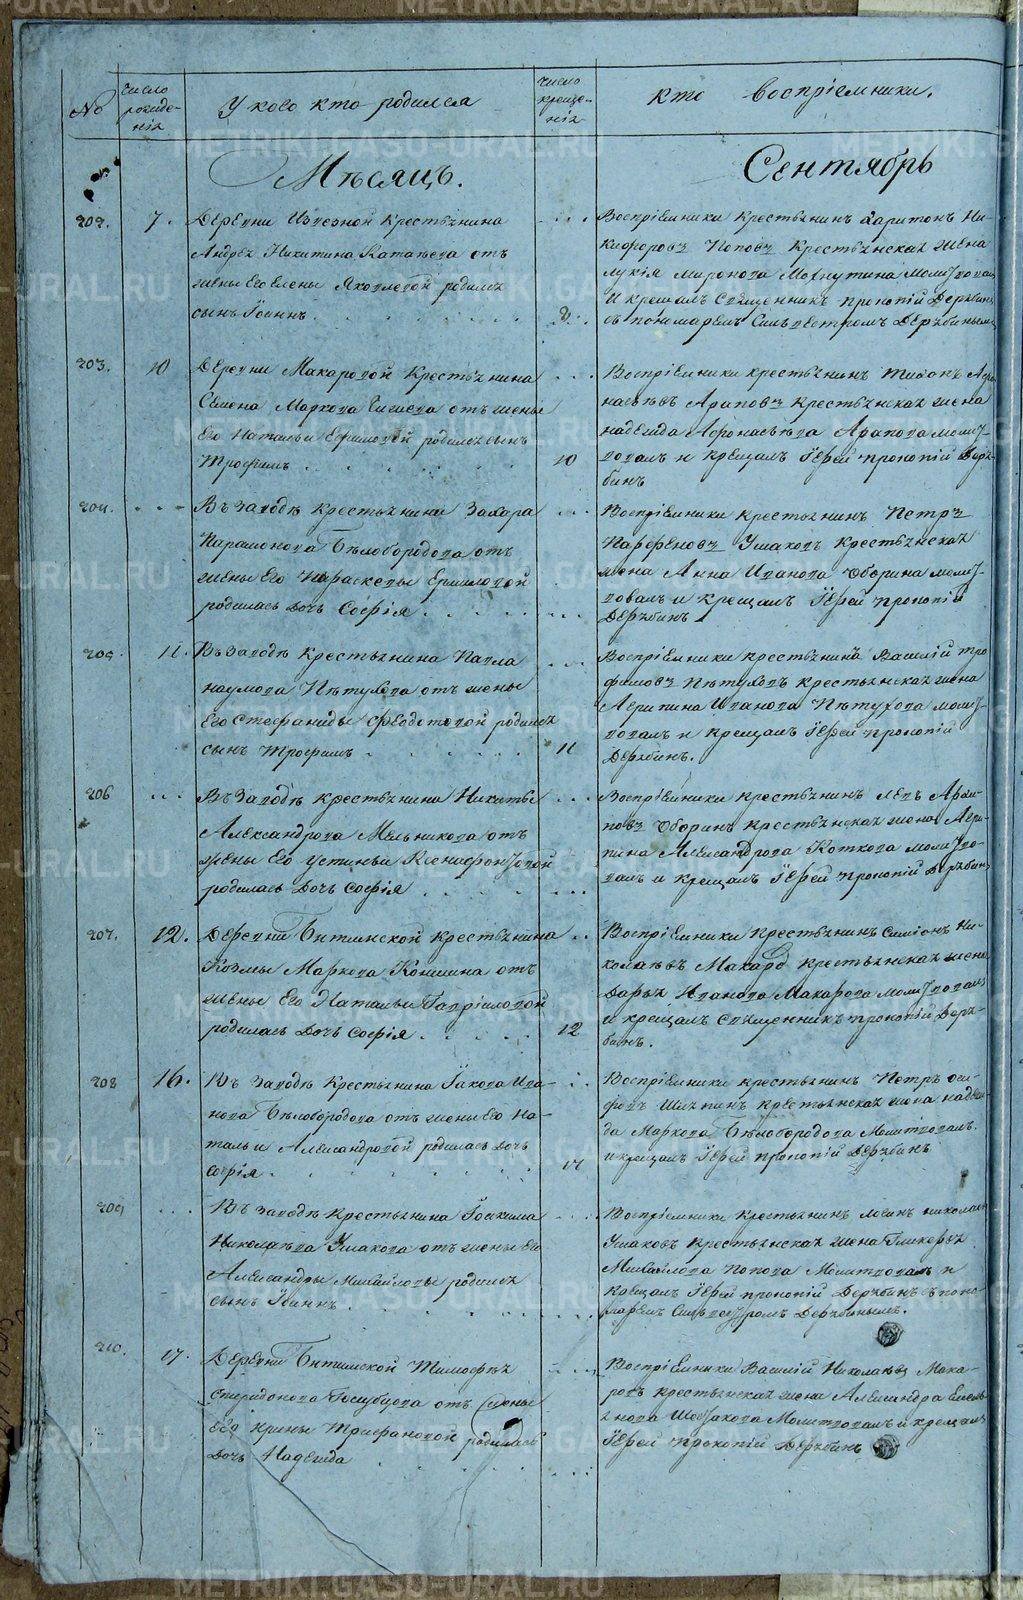 №
число рожденія
У кого кто родился
число крещенія
кто воспріемники.
Мѣсяцъ.
Сентябрь
202.
7.
Деревни крестьянина
Андрея Никитина отъ
жены его Елены Яковлевой родился
сынъ Іоаннъ
8.
Воспріемники крестьянинъ Харитонъ Ни-
кифоровъ Поповъ крестьянская жена
Лукія Миронова молитвовалъ
и крещалъ священникъ Прокопій Дерябинъ
съ пономаремъ Сильвестромъ Дерябинымъ
203.
10
Деревни Макаровой крестьянина
Семена Маркова отъ жены
его Натальи Ефимовой родился сынъ
Трофимъ
10
Воспріемники крестьянинъ Тихонъ Афа-
насьевъ Араповъ крестьянская жена
Надежда Афонасьева Арапова молит-
вовалъ и крещалъ Іерей Прокопій Деря-
бинъ
204.
Въ заводѣ крестьянина Захара
Парамонова Бѣлобородова отъ
жены его Параскевы Ермиловой
родилась дочь Софія
Воспріемники крестьянинъ Петръ
Парфеновъ Ушаковъ крестьянская
жена Анна Иванова Оборина молит-
вовалъ и крещалъ Іерей Прокопій
Дерябинъ
205
11.
Въ заводѣ крестьянина Павла
Наумова Пѣтухова отъ жены
его Стефаниды Феодотовой родился
сынъ Трофимъ
11
Воспріемники крестьянинъ Василій Тро
фимовъ Пѣтуховъ крестьянская жена
Агрипина Иванова Пѣтухова молит-
вовалъ и крещалъ Іерей Прокопій
Дерябинъ.
206
Въ заводѣ крестьянина Никиты
Александрова Мельникова отъ
жены его Устиньи Ксенофонтовой
родилась дочь Софія
Воспріемники крестьянинъ Левъ
Оборинъ крестьянская жена Агри-
пина Александрова Коткова молитво-
валъ и крещалъ Іерей Прокопій Дерябинъ
207.
12.
Деревни Битимской крестьянина
Козмы Маркова Коншина отъ
жены его Натальи Гавріиловой
родилась дочь Софія
12
Воспріемники крестьянинъ Симіонъ Ни-
колаевъ Макаровъ крестьянская жена
Дарья Иванова Макарова молитвовалъ
и крещалъ священникъ Прокопій Деря-
бинъ.
208
16.
Въ заводѣ крестьянина Іакова Ива-
нова Бѣлобородова отъ жены его На-
тальи Александровой родилась дочь
Софія
17
Воспріемники крестьянинъ Петръ Оси-
фовъ крестьянская жена Надеж-
да Маркова Бѣлобородова молитвовалъ
и крещалъ Іерей Прокопій Дерябинъ
209
Въ заводѣ крестьянина Іоакима
Николаева Ушакова отъ жены его
Александры Михайловы родился
сынъ Іоаннъ
Воспріемники крестьянинъ Николаевъ
Ушаковъ крестьянская жена Гликерья
Михайлова Попова молитвовалъ и
крещалъ Іерей Прокопій Дерябинъ съ поно-
маремъ Сильвестромъ Дерябинымъ.
210.
17.
Деревни Битимской Тимофея
Спиридонова Голубцова отъ жены
его Ирины Трифановой родилась
дочь Надежда
Воспріемники Василій Николаевъ Мака-
ровъ крестьянская жена Александра Емель-
янова молитвовалъ и крещалъ
Іерей Прокопій Дерябинъ
METRIKI.GASO-URAL.RU